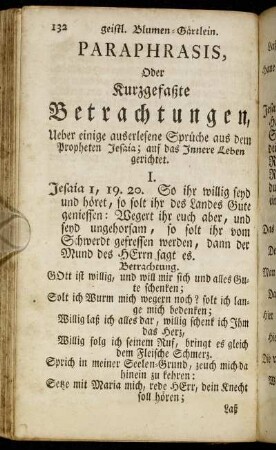 132 geistl. Blumen-Gärtlein.
PARAPHRASIS,
Oder
Kurzgefaßte
Betrachtungen,
Ueber einige auserlesene Sprüche aus dem
Propheten Jesaia; auf das Innere Leben
gerichtet.
I.
Jesaia 1, 19. 20. So ihr willig seyd
und höret, so solt ihr des Landes Gute
geniessen: Wegert ihr euch aber, und
seyd ungehorsam, so solt ihr vom
Schwerdt gefressen werden, dann der
Mund des HErrn sagt es.
Betrachtung.
GOtt ist willig, und will mir sich und alles Gu-
te schenken;
Solt ich Wurm mich wegern noch? solt ich lan-
ge mich bedenken;
Willig laß ich alles dar, willig schenk ich Ihm
das Herz,
Willig folg ich seinem Ruf, bringt es gleich
dem Fleische Schmerz.
Sprich in meiner Seelen-Grund, zeuch mich da
hinein zu kehren:
Setze mit Maria mich, rede HErr, dein Knecht
soll hören;
Laß